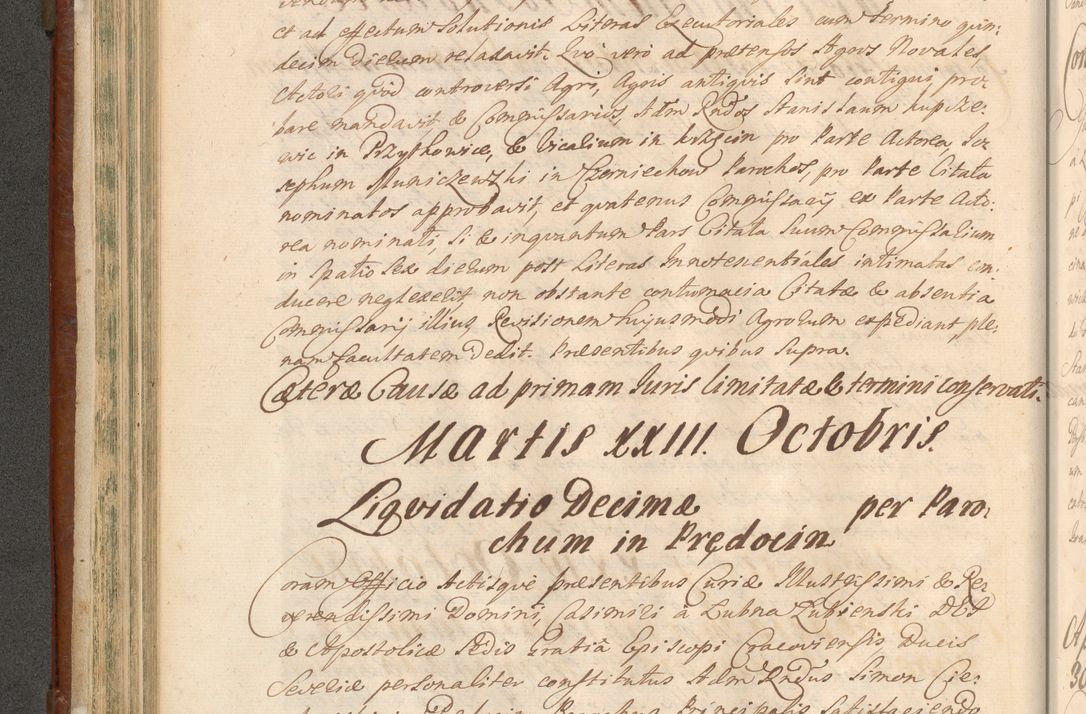 et ad effectum Solutionis Literas Executoriales cum termino quin:
decim dierum relaxavit. Quo vero ad prætensos Agros Novales,
Actori quod controversi Agri, Agris antiquis sint contigui, pro:
bare mandavit & Commissarios, Adm Rndos Stanislaum Kupcze:
wic in Przytkowice, & Vicarium in Krzęcin pro Parte Actorea, Jo:
sephum Municzewski in Czerniechow Parochos, pro Parte Citata
nominatos approbavit, et quatenus Commissarij ex Parte Acto:
rea nominati, si & inquantum Pars Citata Suum Commissarium
in spatio sex dierum post Literas Innotenentiales intimatas con:
ducere neglexerit non obstante contumacia Citatæ & absentia
Commissarij illius Revisionem hujusmodi Agrorum expediant ple:
nam facultatem dedit. Præsentibus quibus supra.
Cæteræ Causæ ad primam Juris limitatæ & termini conservati.
Martis XXIII. Octobris.
Liqvidatio Decimæ per Paro:
chum in Prędocin
Coram Officio Actisque præsentibus Curiæ Illustrissimi & Re:
verendissimi Domini, Casimiri à Lubna Łubienski DEI
& Apostolicæ Sedis Gratiâ Episcopi Cracoviensis Ducis
Severiæ personaliter constitutus Adm Rndus Simon Cie:
Parochus Principalis satisfaciendo